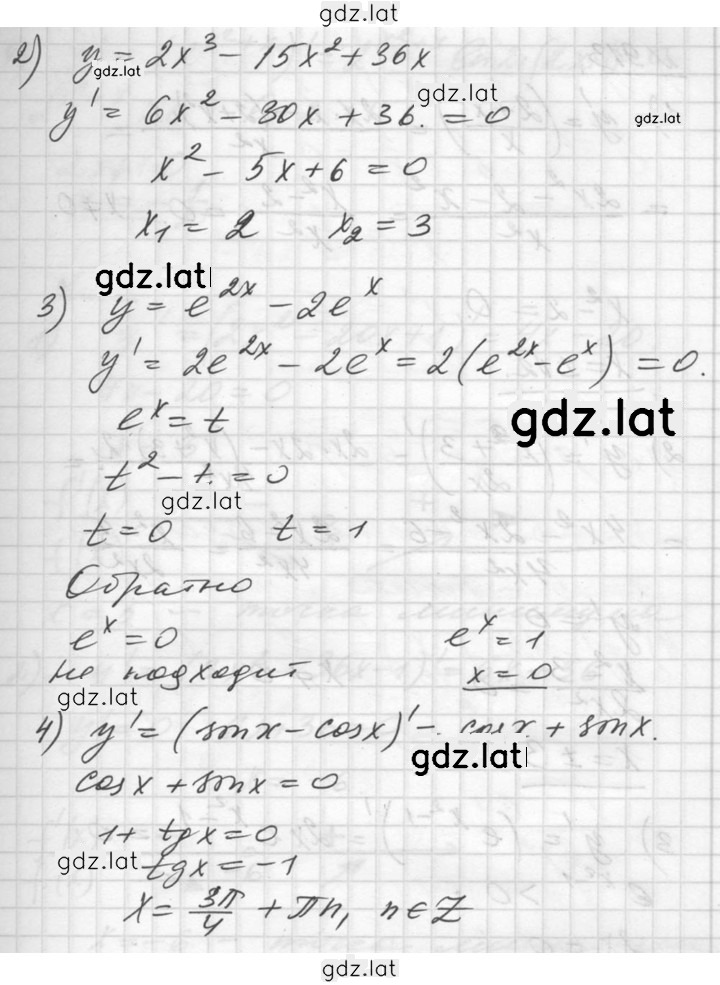 gdz.lat
2) y = 2x³ − 15x² + 36x
gdz.lat
gdz.lat
y' = 6x² − 30x + 36. = 0
gdz.lat
x² − 5x + 6 = 0
x₁ = 2 x₂ = 3
gdz.lat
3) y = e^{2x} − 2e^x
y' = 2e^{2x} − 2e^x = 2(e^{2x} − e^x) = 0.
e^x = t
gdz.lat
t² − t. = 0
gdz.lat
t = 0 t = 1
Обратно
e^x = 0 e^x = 1
не подходит x = 0
gdz.lat
4) y' = (sinx − cosx)' − cosx + sinx.
gdz.lat
cosx + sinx = 0
1 + tgx = 0
gdz.lat
tgx = −1
x = 3π/4 + πn, n ∈ Z
gdz.lat